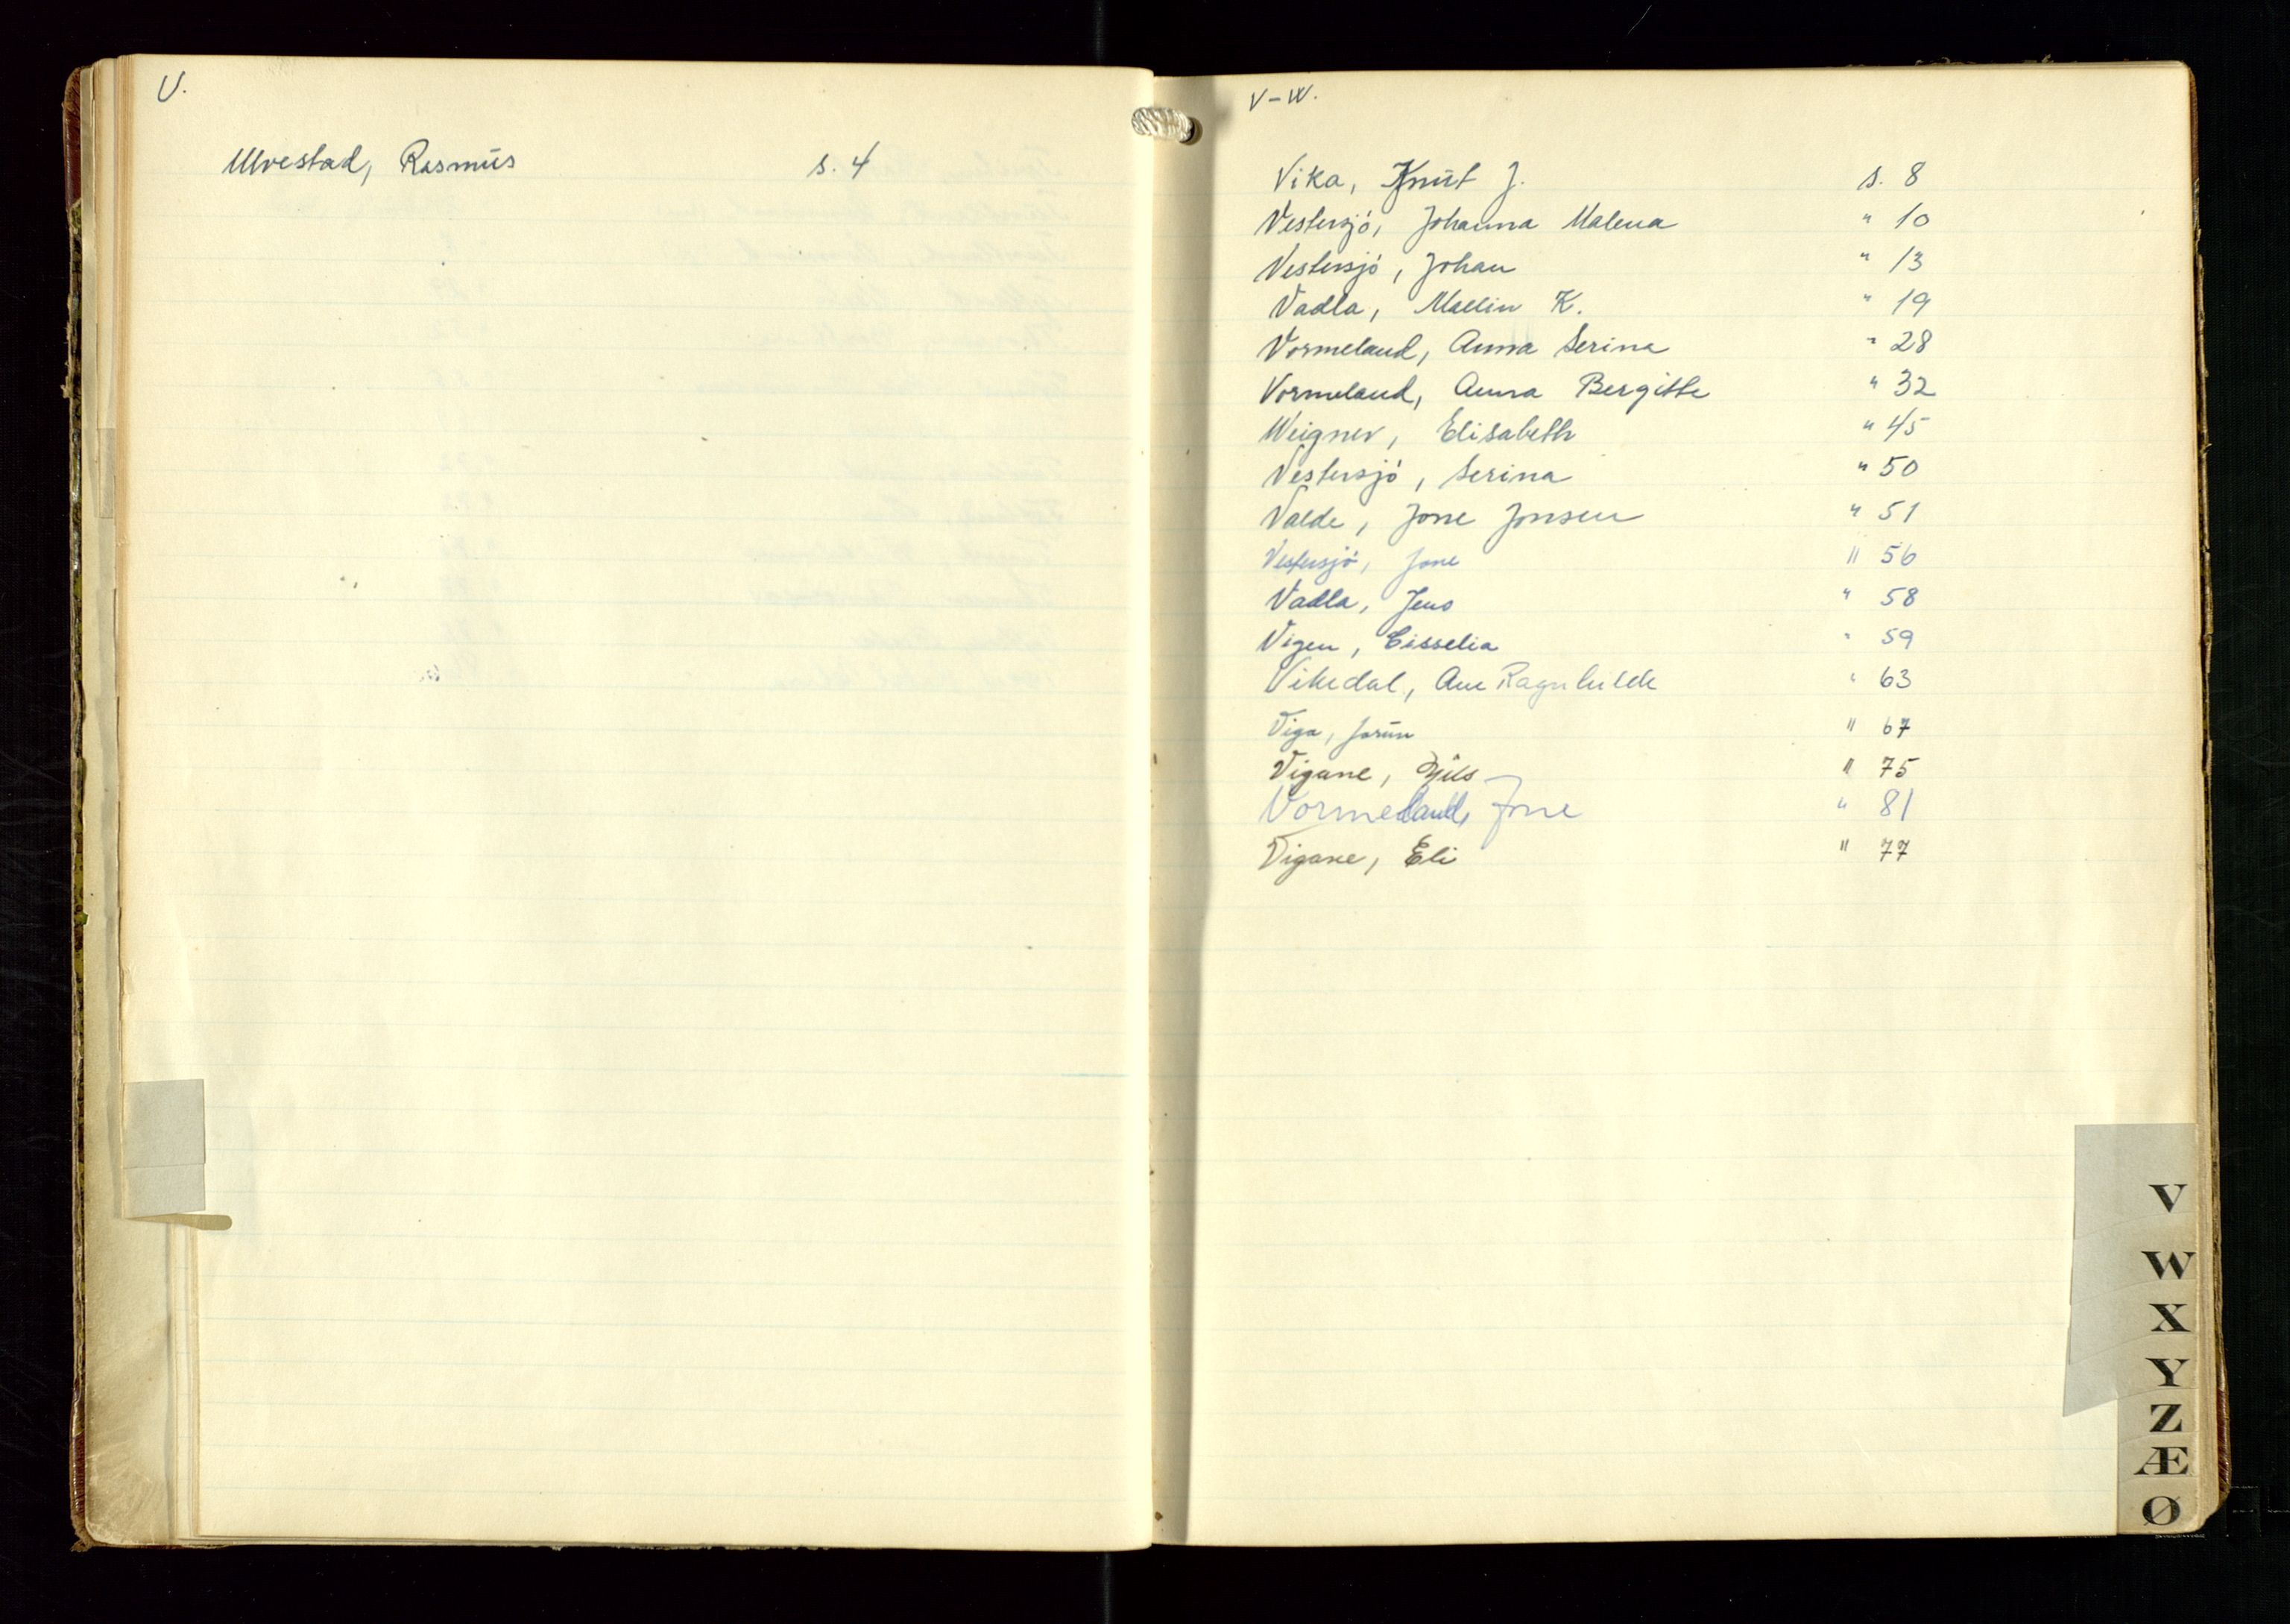 U.
Ulvestad, Rasmus s. 4
V-W.
Vika, Knut J. s. 8
Vestersjö, Johanna Malena " 10
Vestersjö, Johan " 13
Vadla, Mallin K. " 19
Vormeland, Anna Serina " 28
Vormeland, Anna Bergitte " 32
Weigner, Elisabeth " 45
Vestersjö, Serina " 50
Valde, Jone Jonsen " 51
Vestersjö, Jone " 56
Vadla, Jens " 58
Vigen, Cisselia " 59
Vikedal, Ane Ragnhilde " 63
Viga, Jorun " 67
Vigane, " 75
Vormeland, Jone " 81
Vigane, Eli " 77
V
W
X
Y
Z
Æ
Ø